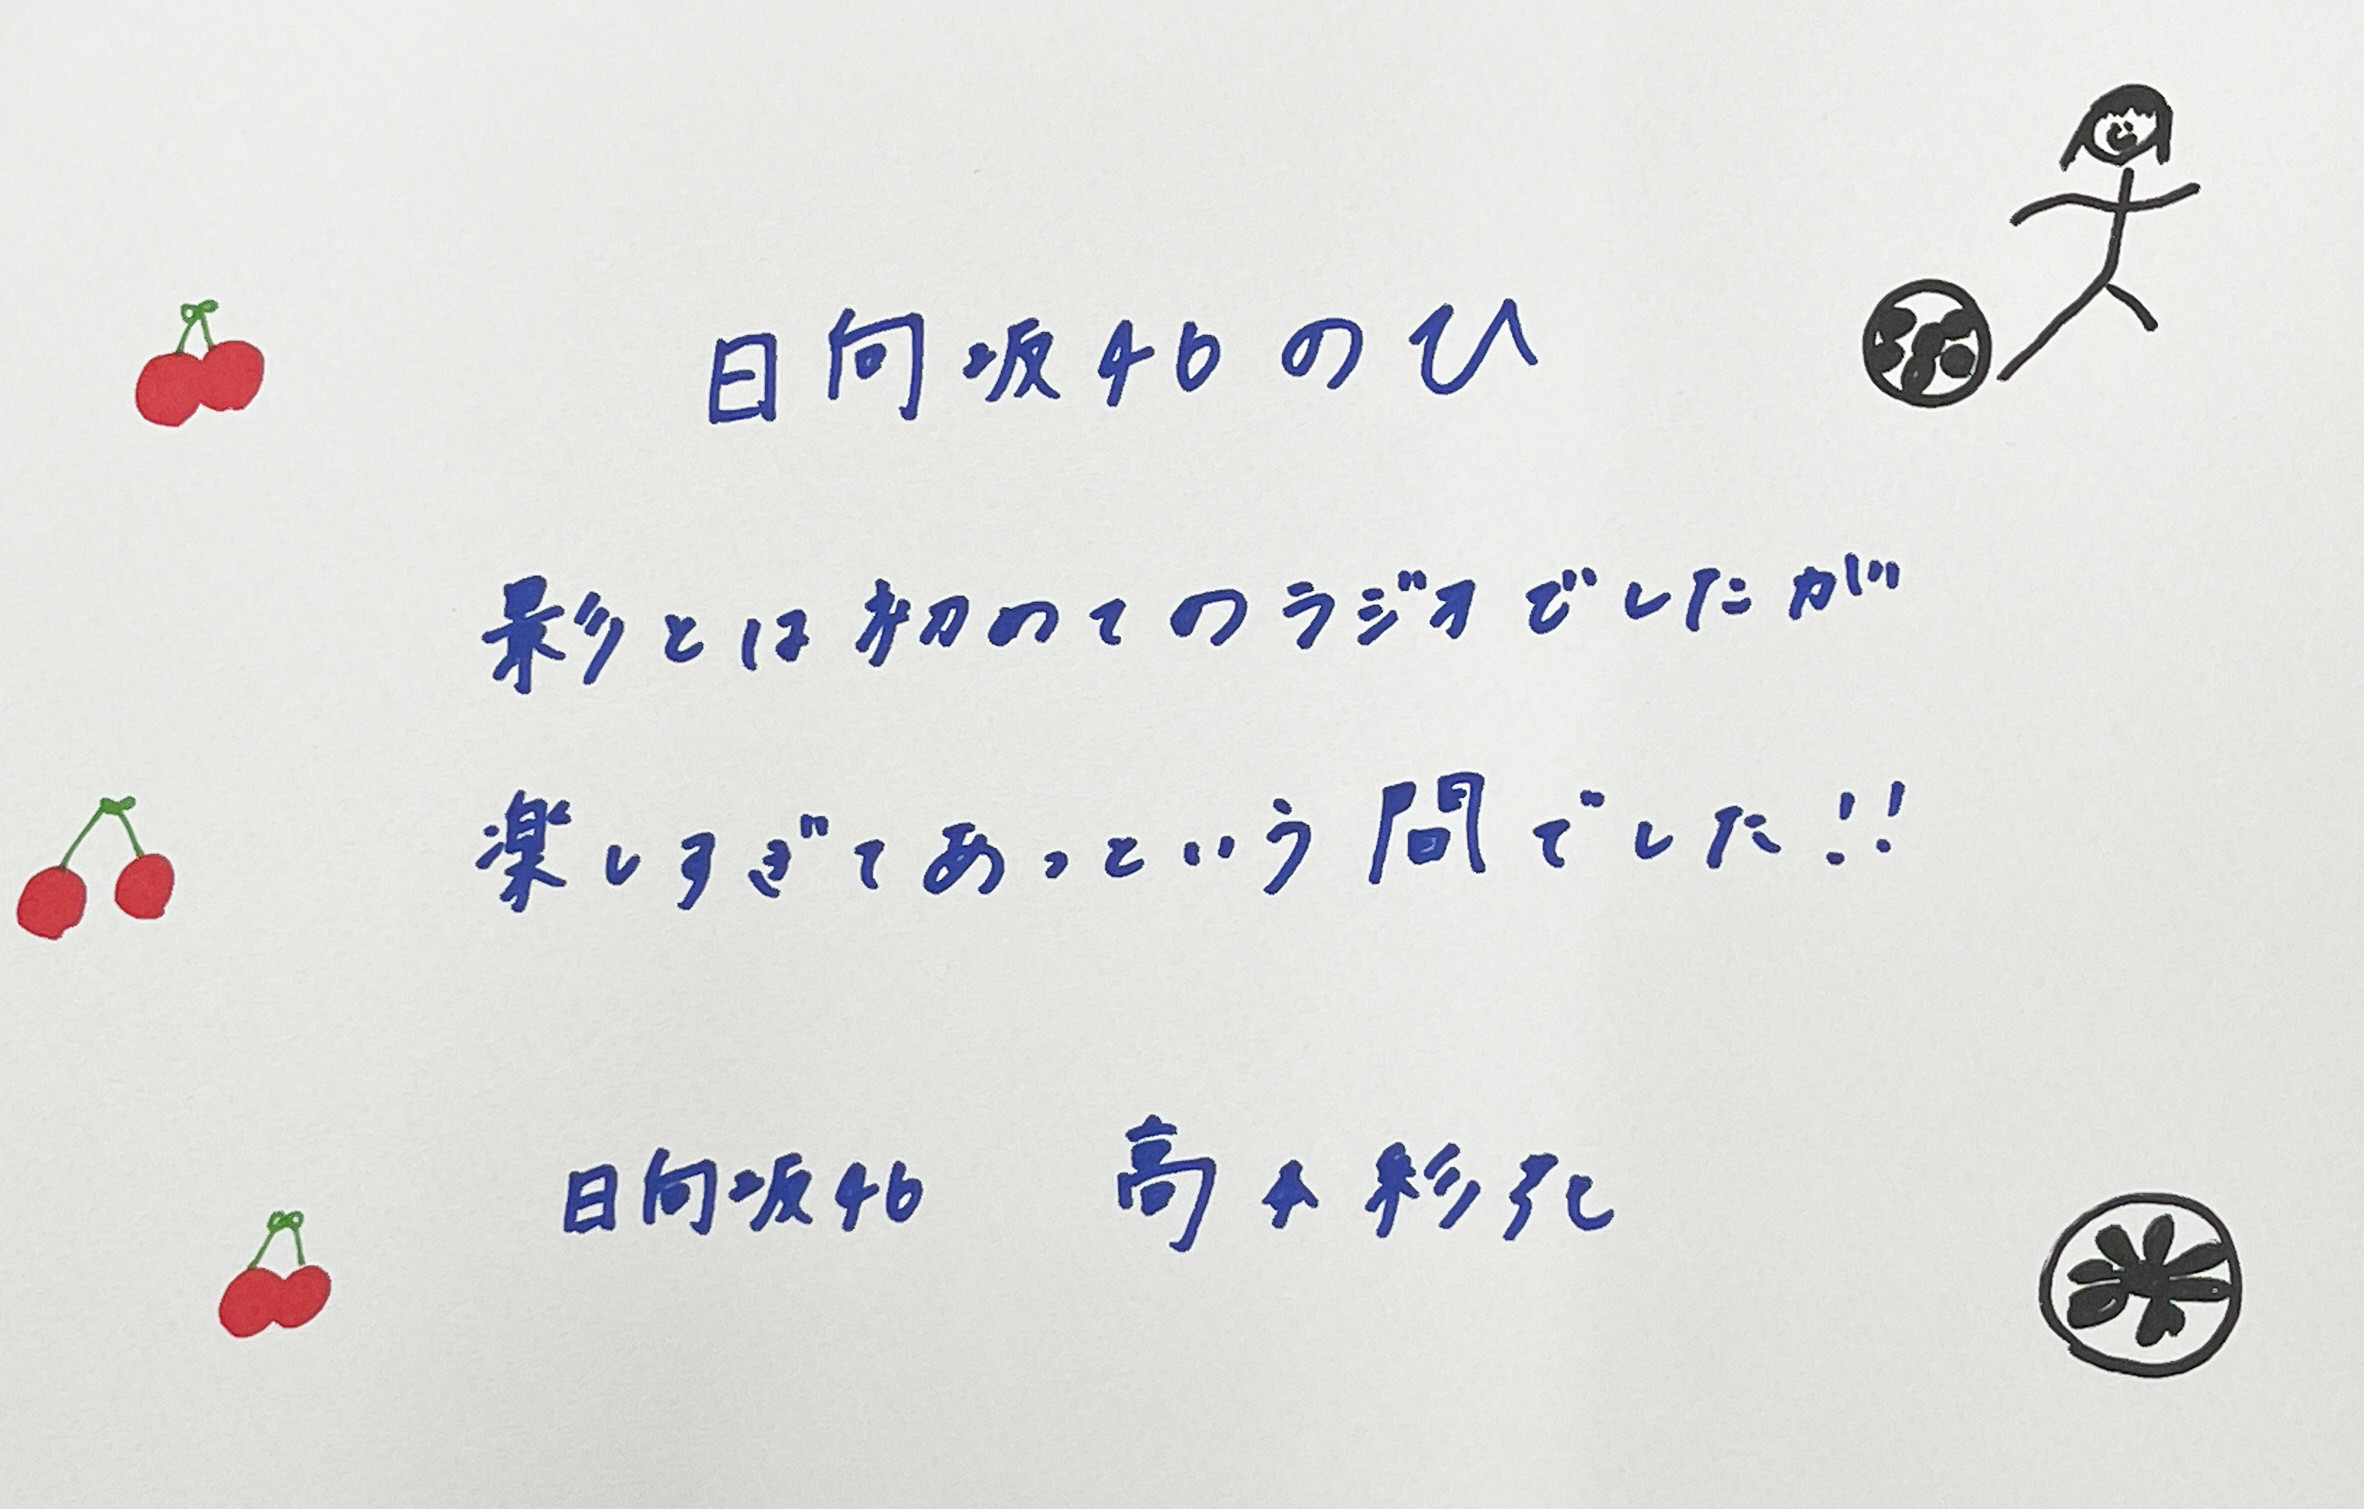 日向坂46のひ
影とは初めてのラジオでしたが
楽しすぎてあっという間でした!!
日向坂46 高本彩花